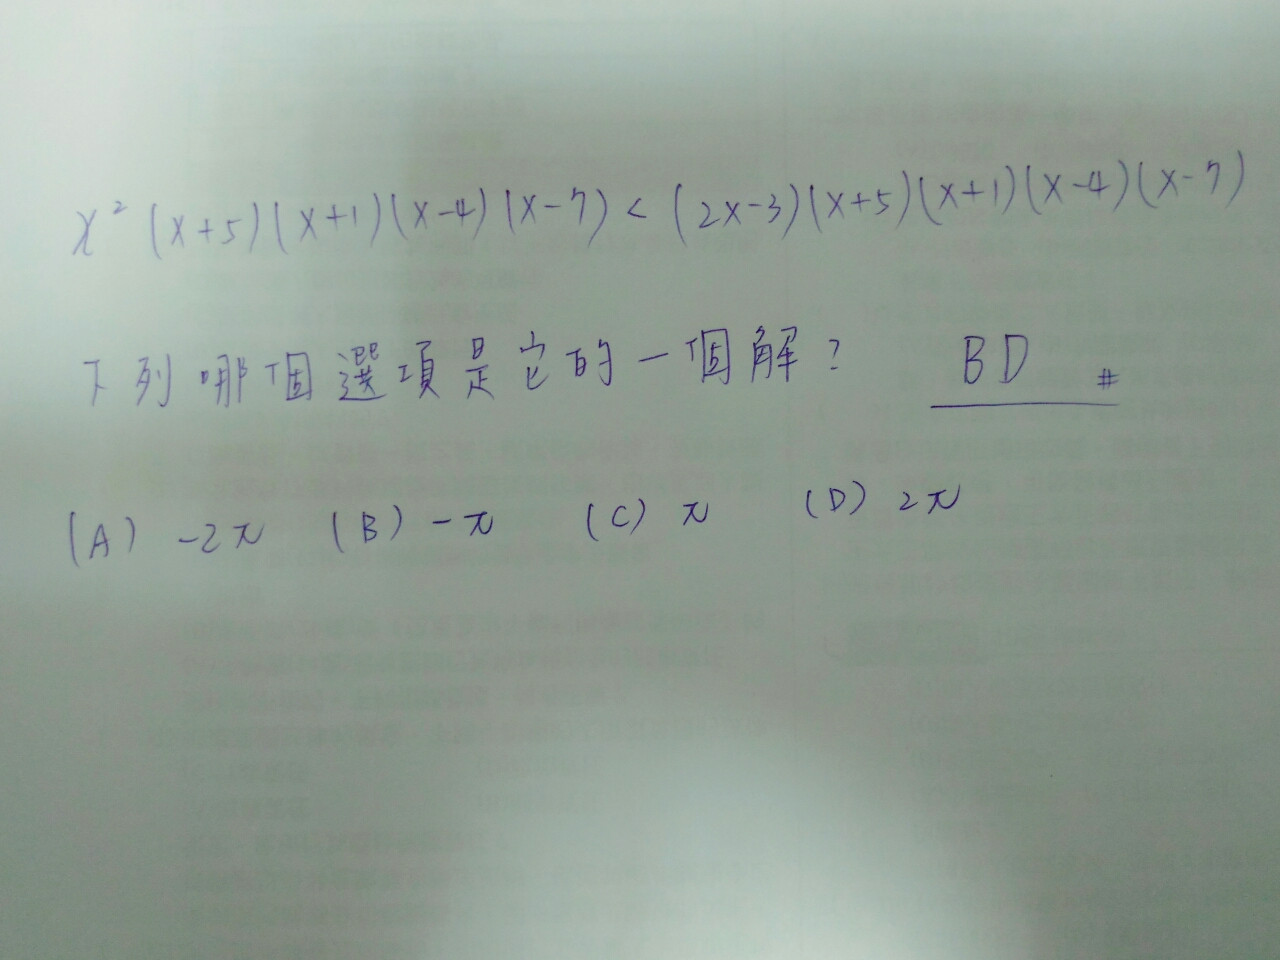 x²(x+5)(x+1)(x-4)(x-7)<(2x-3)(x+5)(x+1)(x-4)(x-7)
下列哪個選項是它的一個解? BD #
(A) -2π (B) -π (C) π (D) 2π